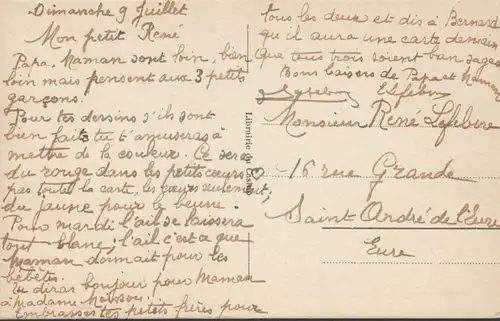 Dimanche 9 Juillet
Mon petit René
Papa, Maman sont loin, bien
loin mais pensent aux 3 petits
garçons.
Pour tes dessins s'ils sont
bien faits tu t'amuseras à
mettre de la couleur. Ce sera
du rouge dans les petits cœurs
pas toute la carte, les cœurs seulement;
du jaune pour le beurre.
Pour mardi l'ail se laissera
tout blanc; l'ail c'est ce que
Maman donnait pour les
bébêtes.
Tu diras bonjour pour Maman
à madame
Embrasses tes petits frères pour
tous les deux et dis à Bernard
qu'il aura une carte demain
Que tous trois soient bien sages
Bons baisers de Papa et Maman
Lefebvre
Librairie du Casino
Monsieur René Lefebvre
16 rue Grande
Saint André de l'Eure
Eure